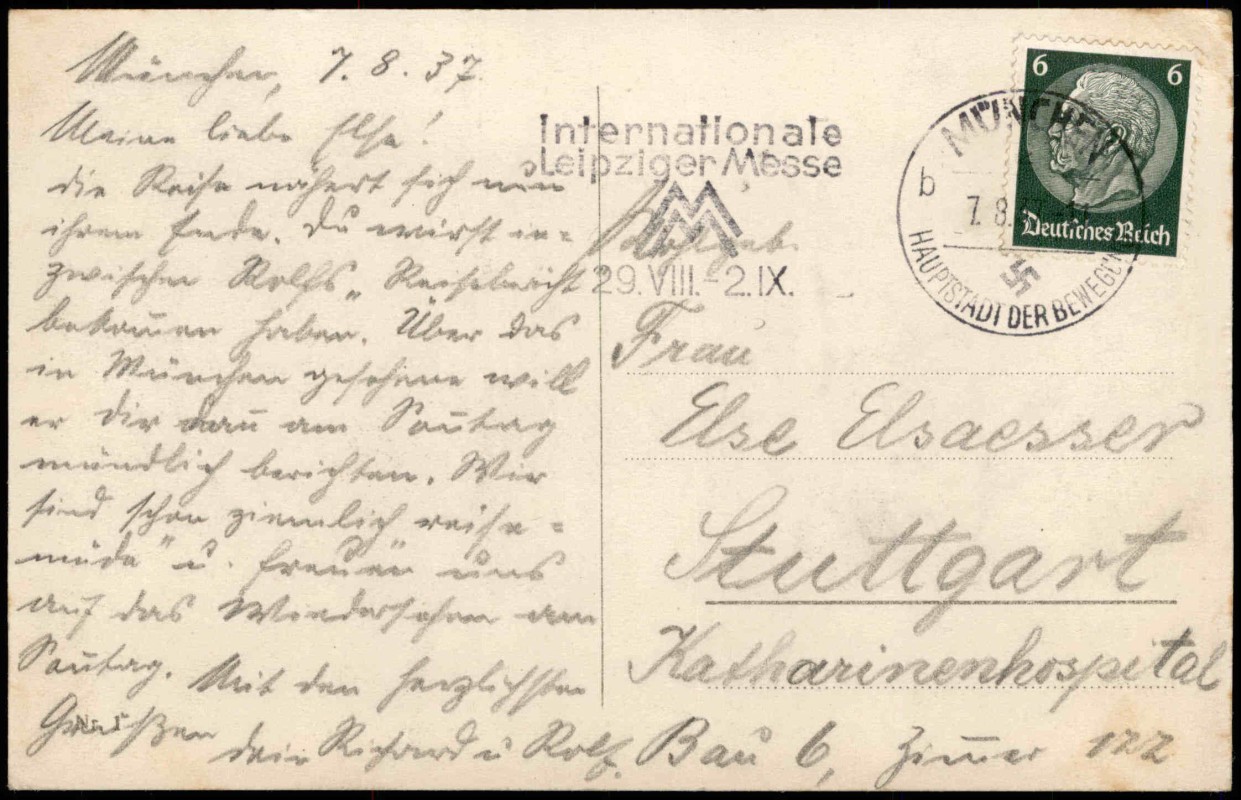 München, 7.8.37.
Meine liebe Else!
die Reise nähert sich nun
ihrem Ende. Du wirst in=
zwischen Rolfs „Reisebericht"
bekom̄en haben. Über das
in München gesehene will
er Dir dan̄ am Son̄tag
mündlich berichten. Wir
sind schon ziemlich „reise=
müde" u. freuen uns
auf das Wiedersehen am
Son̄tag. Mit den herzlichsten
Grüßen
dein Richard u Rolf.
Nr. 1
Internationale
Leipziger Messe
29.VIII.-2.IX.
MÜNCHEN
b
7.8.
HAUPTSTADT DER BEWEGUN
6 6
Deutsches Reich
Frau
Else Elsaesser
Stuttgart
Katharinenhospital
Bau 6, Zim̄er 122